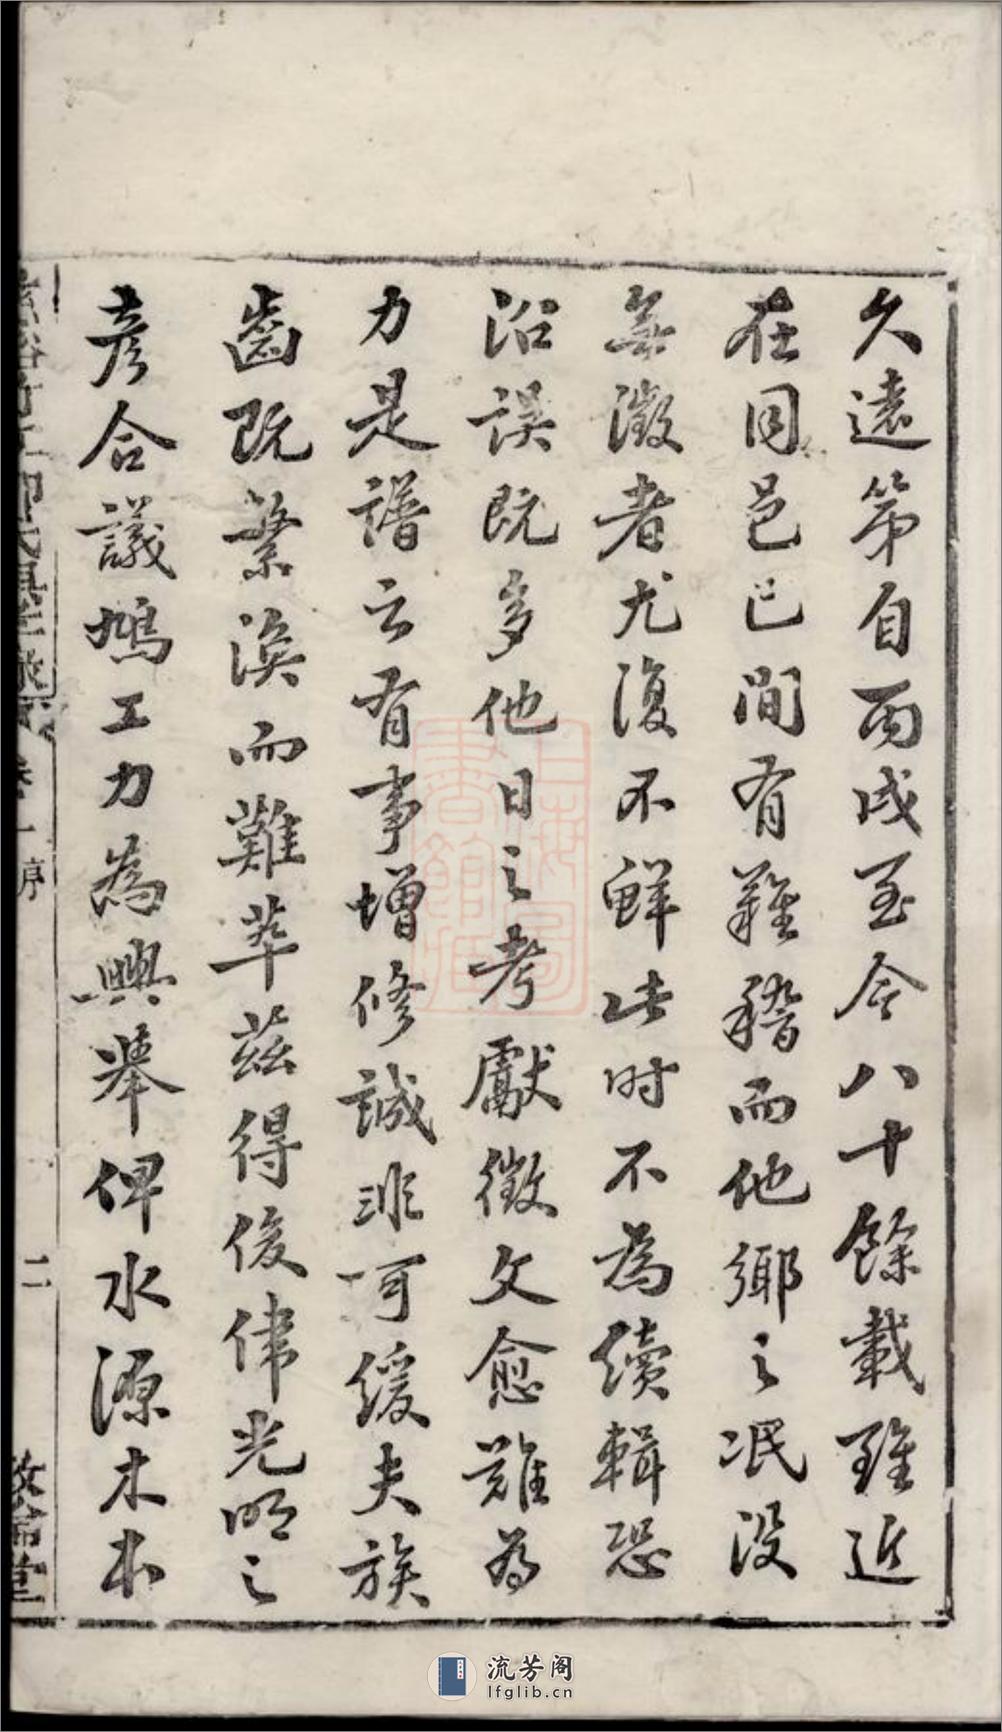 久遠第自丙戌至今八十餘載雖近
在同邑已間有難稽而他鄉之泯没
無徵者尤復不鮮此时不為續輯恐
沿误既多他日之考獻徵文愈難為
力是譜云有事增修誠非可緩夫族
齒既蘩渙而難萃茲得俊偉光明之
彦合議鳩工力為興舉俾水源木本
序
二
敦倫堂
上海圖書館藏
流芳阁
lfglib.cn